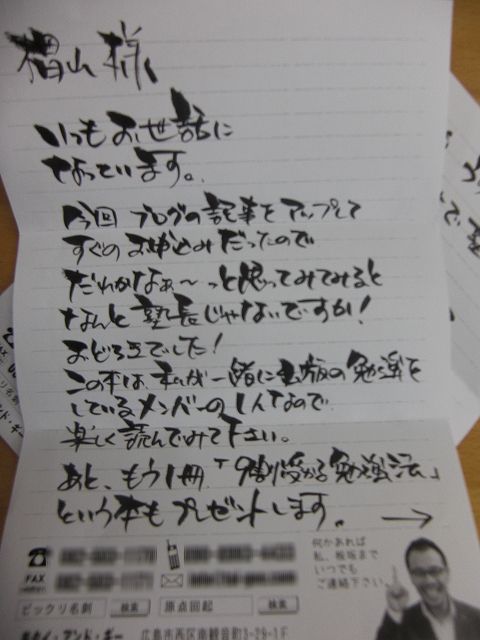 椙山様
いつもお世話に
なっています。
今回 ブログの記事をアップして
すぐのお申込みだったので
だれかなぁ〜っと思ってみてみると
なんと塾長じゃないですか！
おどろきでした！
この本は、私が一緒に出版の勉強を
しているメンバーの1人なので
楽しく読んでみて下さい。
あと、もう1冊「9割受かる勉強法」
という本もプレゼントします。 →
何かあれば
私、板坂まで
いつでも
ご連絡下さい
FAX
ビックリ名刺 検索 原点回起 検索
広島市西区南観音町3-29-1F